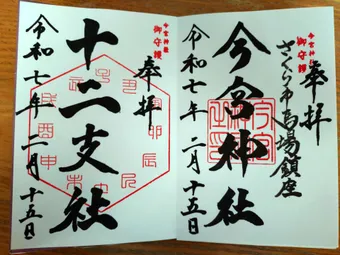 今宮神社
御守護
奉拝
さくら市馬場鎮座
今宮神社
令和七年二月十五日
今宮神社
御守護
奉拝
十二支社
令和七年二月十五日